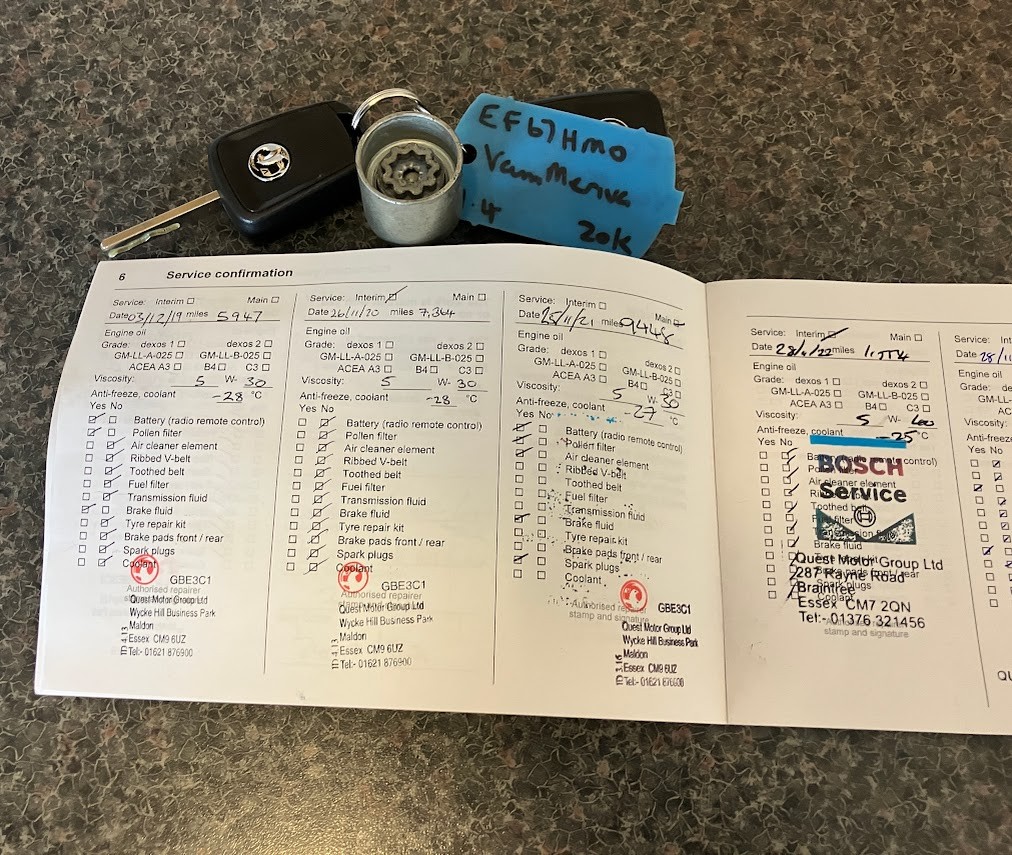 EF67HMO
Vaux Meriva
1.4 20k
6 Service confirmation
Service: Interim Main
Date 03/12/19 miles 5947
Engine oil
Grade: dexos 1 dexos 2
GM-LL-A-025 GM-LL-B-025
ACEA A3 B4 C3
Viscosity: 5 W- 30
Anti-freeze, coolant -28 °C
Yes No
Battery (radio remote control)
Pollen filter
Air cleaner element
Ribbed V-belt
Toothed belt
Fuel filter
Transmission fluid
Brake fluid
Tyre repair kit
Brake pads front / rear
Spark plugs
Coolant
GBE3C1
Authorised repairer
Quest Motor Group Ltd
Wycke Hill Business Park
Maldon
Essex CM9 6UZ
Tel:- 01621 876900
Service: Interim Main
Date 26/11/20 miles 7,364
Engine oil
Grade: dexos 1 dexos 2
GM-LL-A-025 GM-LL-B-025
ACEA A3 B4 C3
Viscosity: 5 W- 30
Anti-freeze, coolant -28 °C
Yes No
Battery (radio remote control)
Pollen filter
Air cleaner element
Ribbed V-belt
Toothed belt
Fuel filter
Transmission fluid
Brake fluid
Tyre repair kit
Brake pads front / rear
Spark plugs
Coolant
GBE3C1
Authorised repairer
Quest Motor Group Ltd
Wycke Hill Business Park
Maldon
Essex CM9 6UZ
Tel:- 01621 876900
Service: Interim Main
Date 25/11/21 miles 9448
Engine oil
Grade: dexos 1 dexos 2
GM-LL-A-025 GM-LL-B-025
ACEA A3 B4 C3
Viscosity: 5 W- 30
Anti-freeze, coolant -27 °C
Yes No
Battery (radio remote control)
Pollen filter
Air cleaner element
Ribbed V-belt
Toothed belt
Fuel filter
Transmission fluid
Brake fluid
Tyre repair kit
Brake pads front / rear
Spark plugs
Coolant
Authorised repairer
stamp and signature
GBE3C1
Quest Motor Group Ltd
Wycke Hill Business Park
Maldon
Essex CM9 6UZ
Service: Interim Main
Date miles
Engine oil
Grade: dexos 1 dexos 2
GM-LL-A-025 GM-LL-B-025
ACEA A3 B4 C3
Viscosity: 5 W-
Anti-freeze, coolant -25 °C
Yes No
BOSCH
Service
Toothed belt
Brake fluid
Quest Motor Group Ltd
287 Rayne Road
Braintree
Essex CM7 2QN
Tel:- 01376 321456
stamp and signature
Service: Int
Date
Engine oil
Grade: de
GM-LL-
AC
Viscosity:
Anti-freez
Yes No
QU